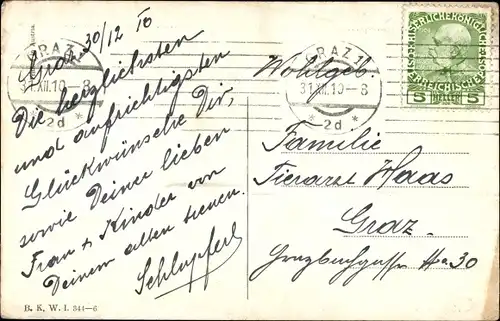 Graz 30/12 10
Die herzlichsten
und aufrichtigsten
Glückwünsche Dir,
sowie Deiner lieben
Frau + Kinder von
Deinem alten treuen
Schlupferl
B. K. W. I. 344-6
GRAZ 1
31.XII.10-8
* 2d *
GRAZ 1
31.XII.10-8
* 2d *
5 HELLER 5
Wohlgeb.
Familie
Tierarzt Haas
Graz
No 30